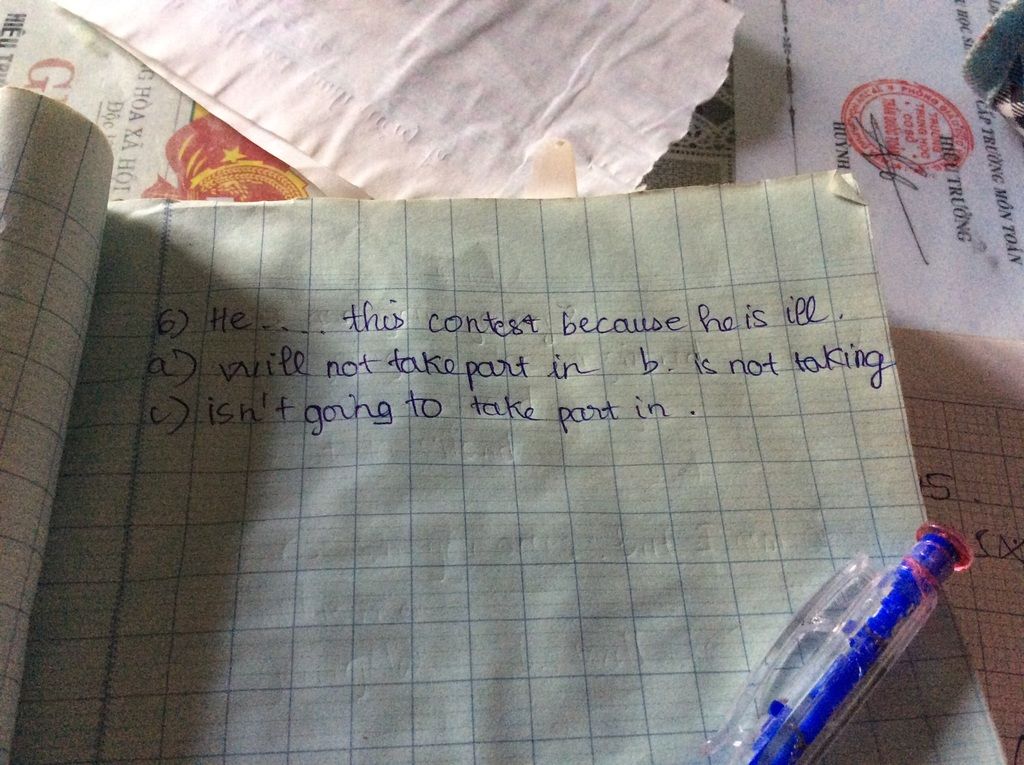 HIỆU TRƯ
G HÒA XÃ HỘI
Độc l
CẤP TRƯỜNG MÔN TOÁN
HIỆU TRƯỞNG
HUỲNH
6) He .... this contest because he is ill.
a) will not take part in b. is not taking
c) isn't going to take part in.
5.